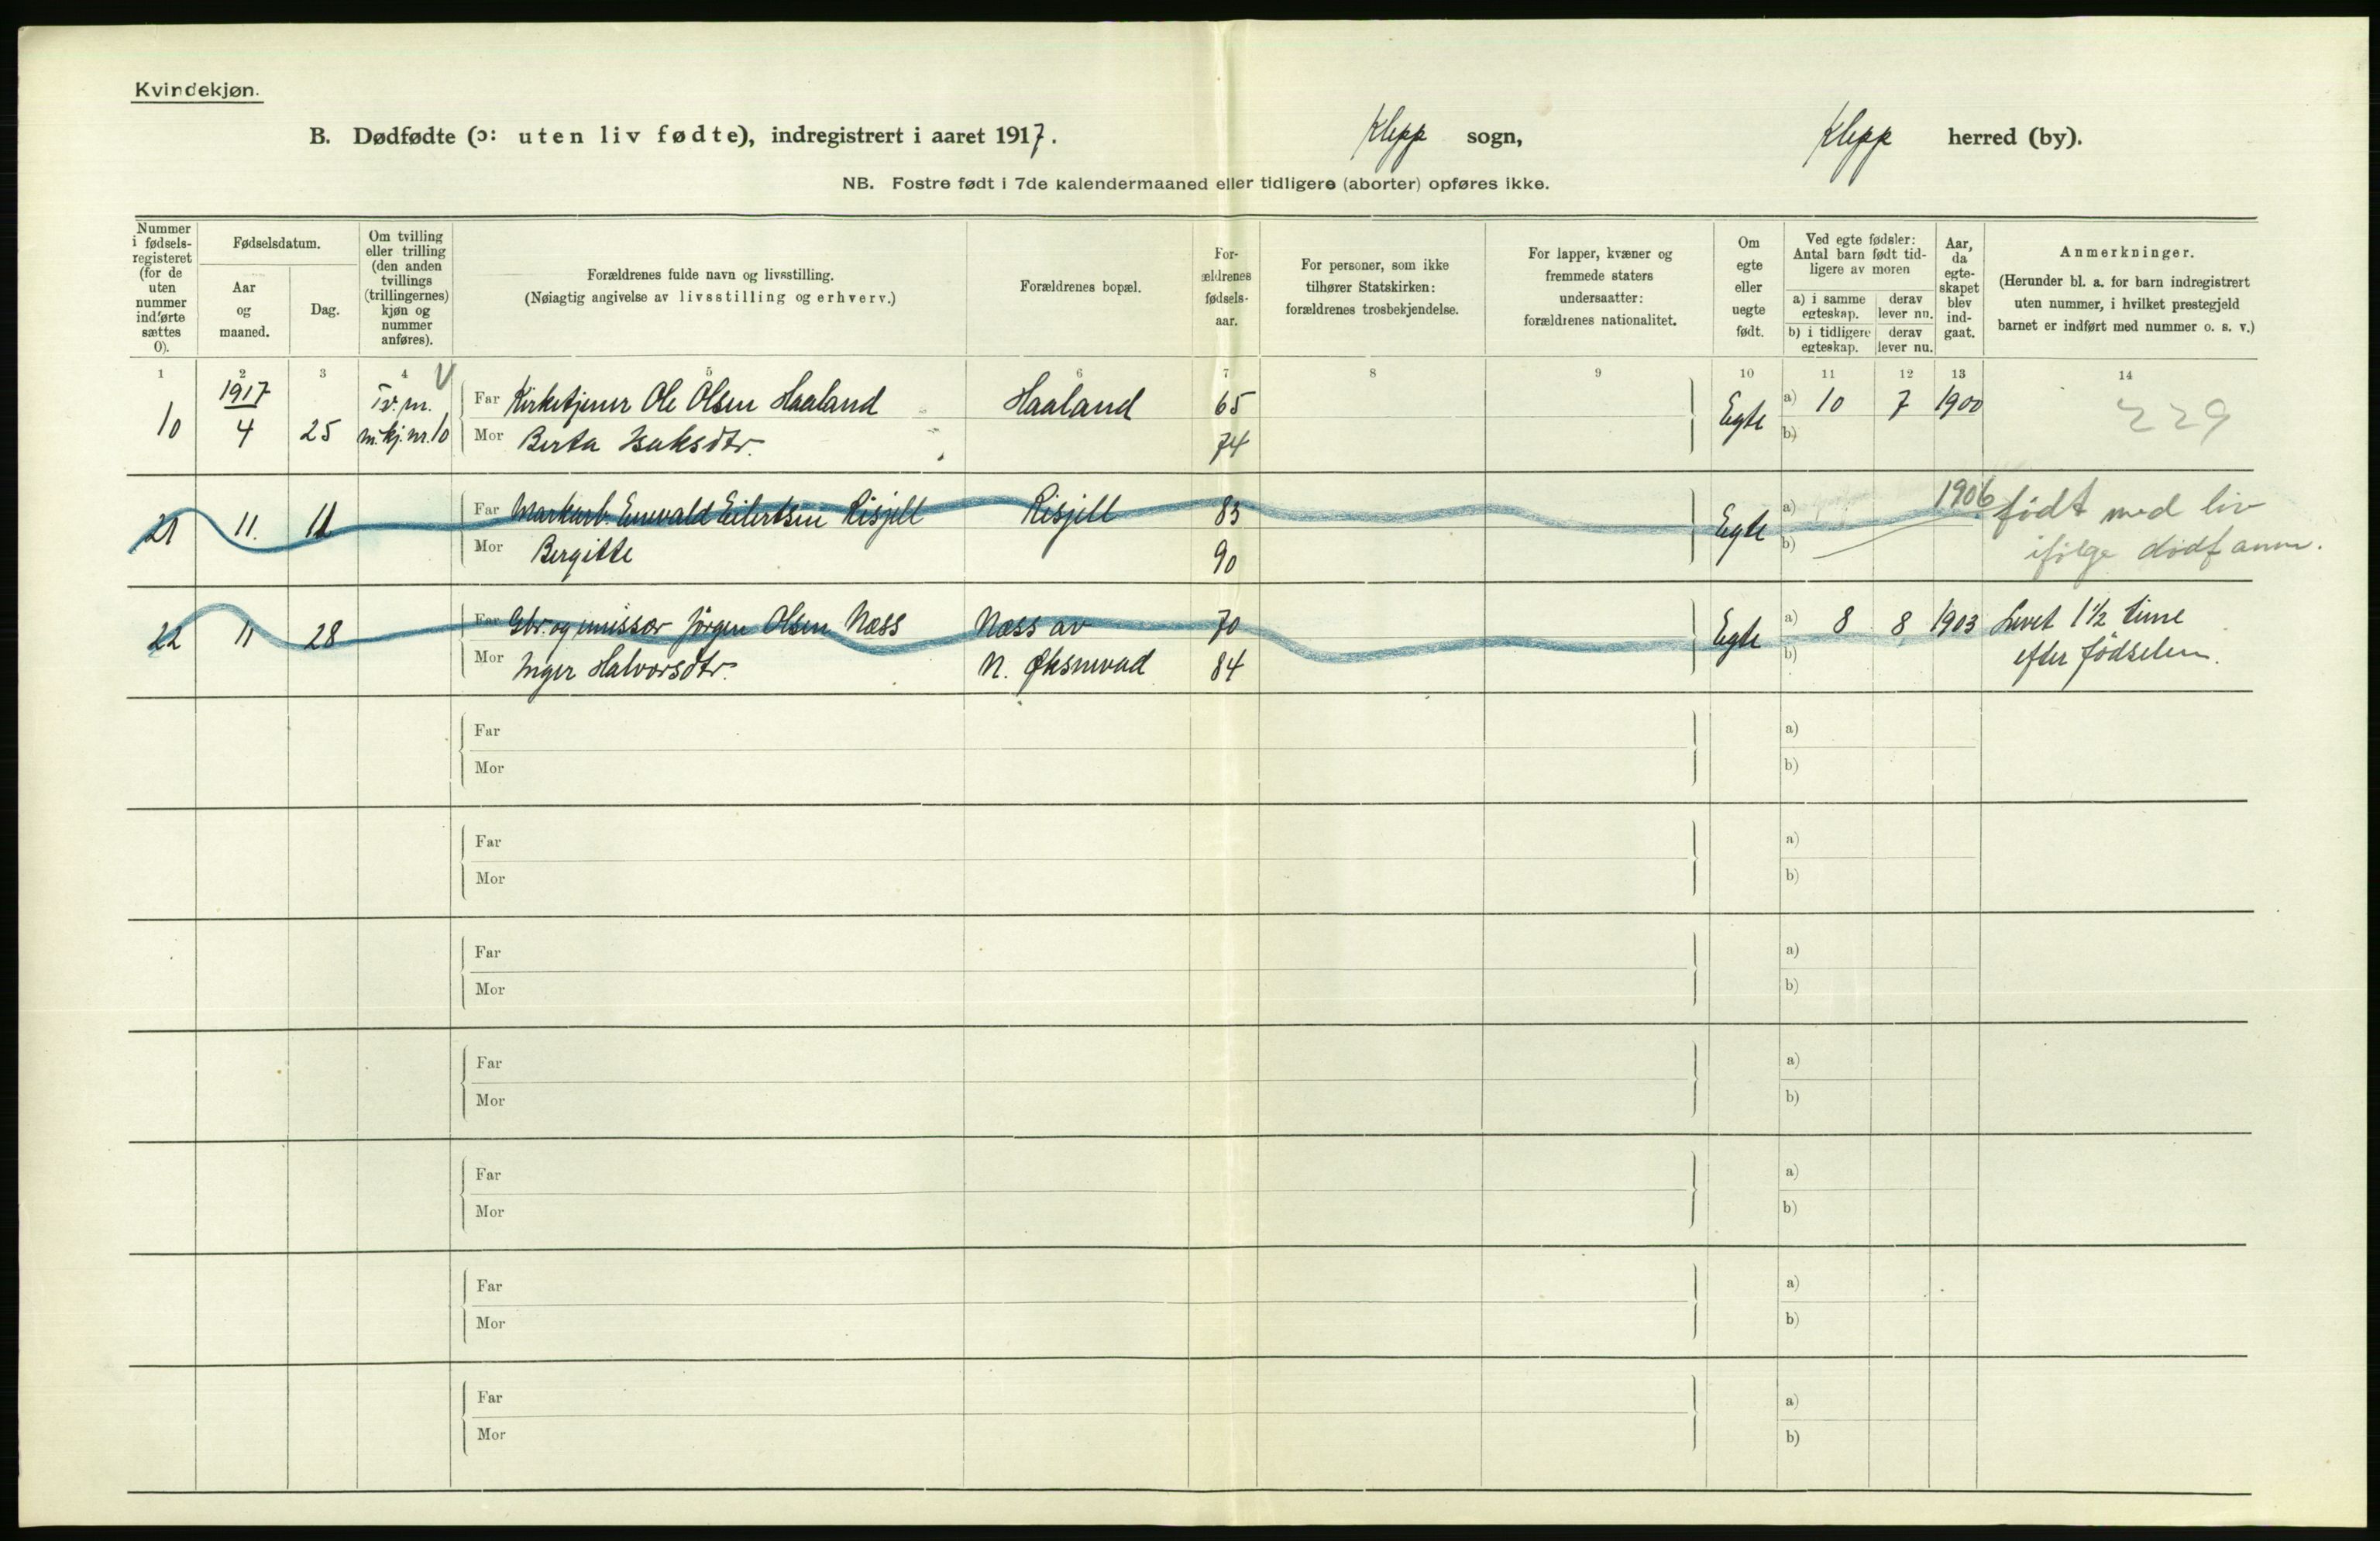 Kvindekjøn.
B. Dødfødte (ɔ: uten liv fødte), indregistrert i aaret 1917. Klepp sogn, Klepp herred (by).
NB. Fostre født i 7de kalendermaaned eller tidligere (aborter) opføres ikke.
Nummer i fødsels-registeret (for de uten nummer indførte sættes 0).
Fødselsdatum.
Aar og maaned.
Dag.
Om tvilling eller trilling (den anden tvillings (trillingernes) kjøn og nummer anføres).
Forældrenes fulde navn og livsstilling.
(Nøiagtig angivelse av livsstilling og erhverv.)
Forældrenes bopæl.
For-ældrenes fødsels-aar.
For personer, som ikke tilhører Statskirken: forældrenes trosbekjendelse.
For lapper, kvæner og fremmede staters undersaatter: forældrenes nationalitet.
Om egte eller uegte født.
Ved egte fødsler: Antal barn født tid-ligere av moren
a) i samme egteskap. derav lever nu.
b) i tidligere egteskap. derav lever nu.
Aar, da egte-skapet blev ind-gaat.
Anmerkninger.
(Herunder bl. a. for barn indregistrert uten nummer, i hvilket prestegjeld barnet er indført med nummer o. s. v.)
1 2 3 4 5 6 7 8 9 10 11 12 13 14
1917 Tv. m. Far Kirketjener Ole Olsen Haaland Haaland 65 Egte a) 10 7 1900 229
10 4 25 m.kj. nr. 10 Mor Berta Isaksdtr. 74 b)
21 11. 11 Far Markarb. Enevald Eilertsen Risjell Risjell 83 Egte a) 1906 født med liv
Mor Bergitte 90 b) ifølge dødfanm.
22 11 28 Far Gbr. og emissær Jørgen Olsen Næss Næss av 70 Egte a) 8 8 1903 Levet 1½ time
Mor Inger Halvorsdtr. N. Øksnevad 84 b) efter fødselen.
Far a)
Mor b)
Far a)
Mor b)
Far a)
Mor b)
Far a)
Mor b)
Far a)
Mor b)
Far a)
Mor b)
Far a)
Mor b)